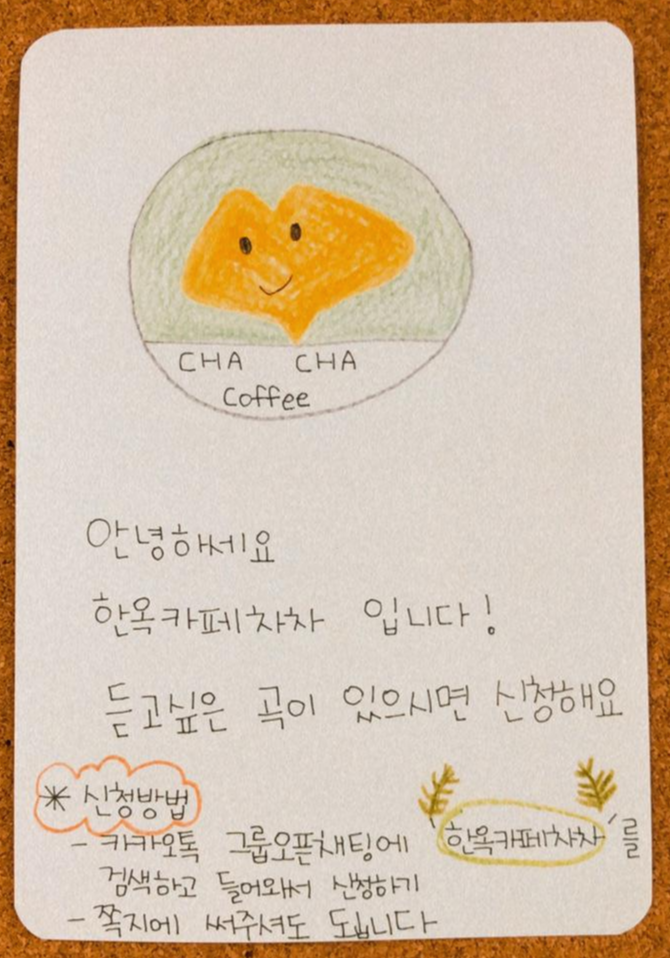 CHA CHA
Coffee
안녕하세요
한옥카페차차 입니다!
듣고싶은 곡이 있으시면 신청해요
* 신청방법
- 카카오톡 그룹오픈채팅에 '한옥카페차차'를
검색하고 들어와서 신청하기
- 쪽지에 써주셔도 됩니다